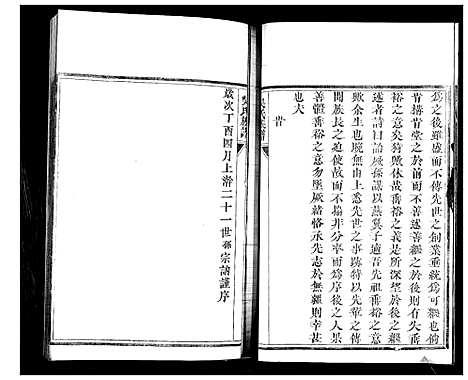 為之後雖盛而不傳先世之創業垂統為可繼也
肯搆肯堂之於前而不述善繼之於後則有
裕之意矣猗歟休哉故垂裕之義是所深望於
述者詩曰詒厥孫謀以燕翼子適吾祖垂裕之意
歟余生也晚無由上悉先世之事跡特以先輩之傳
聞族長之迫使故而不揣非分率而為序後之人果
善體垂裕之意勿墜厥緒恪承先志於無疆則幸甚
也夫
旹
歲次丁酉四月上澣二十一世孫宗誥謹序
吳氏族譜